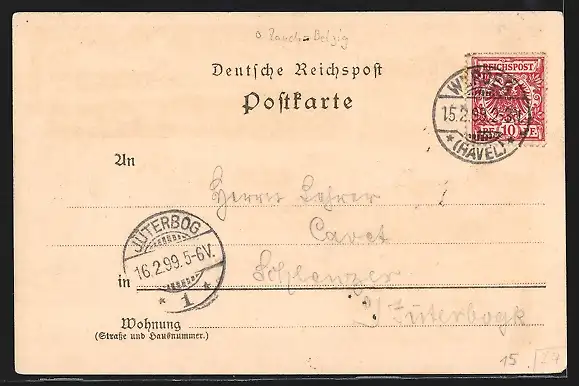 Zauch-Belzig
Deutsche Reichspost
Postkarte
REICHSPOST
10
WERDER
15.2.99.
*(HAVEL)*
An
Herrn Lehrer
JÜTERBOG
16.2.99.5-6V.
* 1 *
in Schlenzer
b/Jüterbogk
Wohnung
(Straße und Hausnummer.)
15